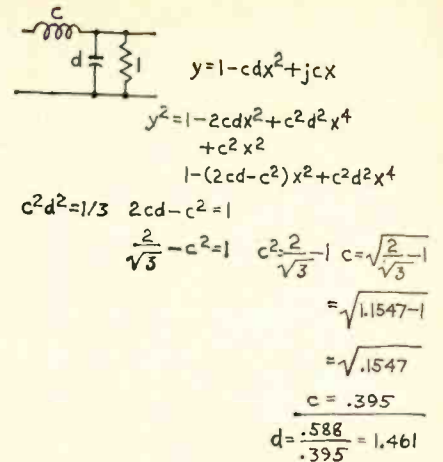 c
d
1
y=1-cdx²+jcx
y²=1-2cdx²+c²d²x⁴
+c²x²
1-(2cd-c²)x²+c²d²x⁴
c²d²=1/3 2cd-c²=1
2/√3-c²=1 c²=2/√3-1 c=√(2/√3-1)
=√1.1547-1
=√.1547
c = .395
d=.588/.395=1.461